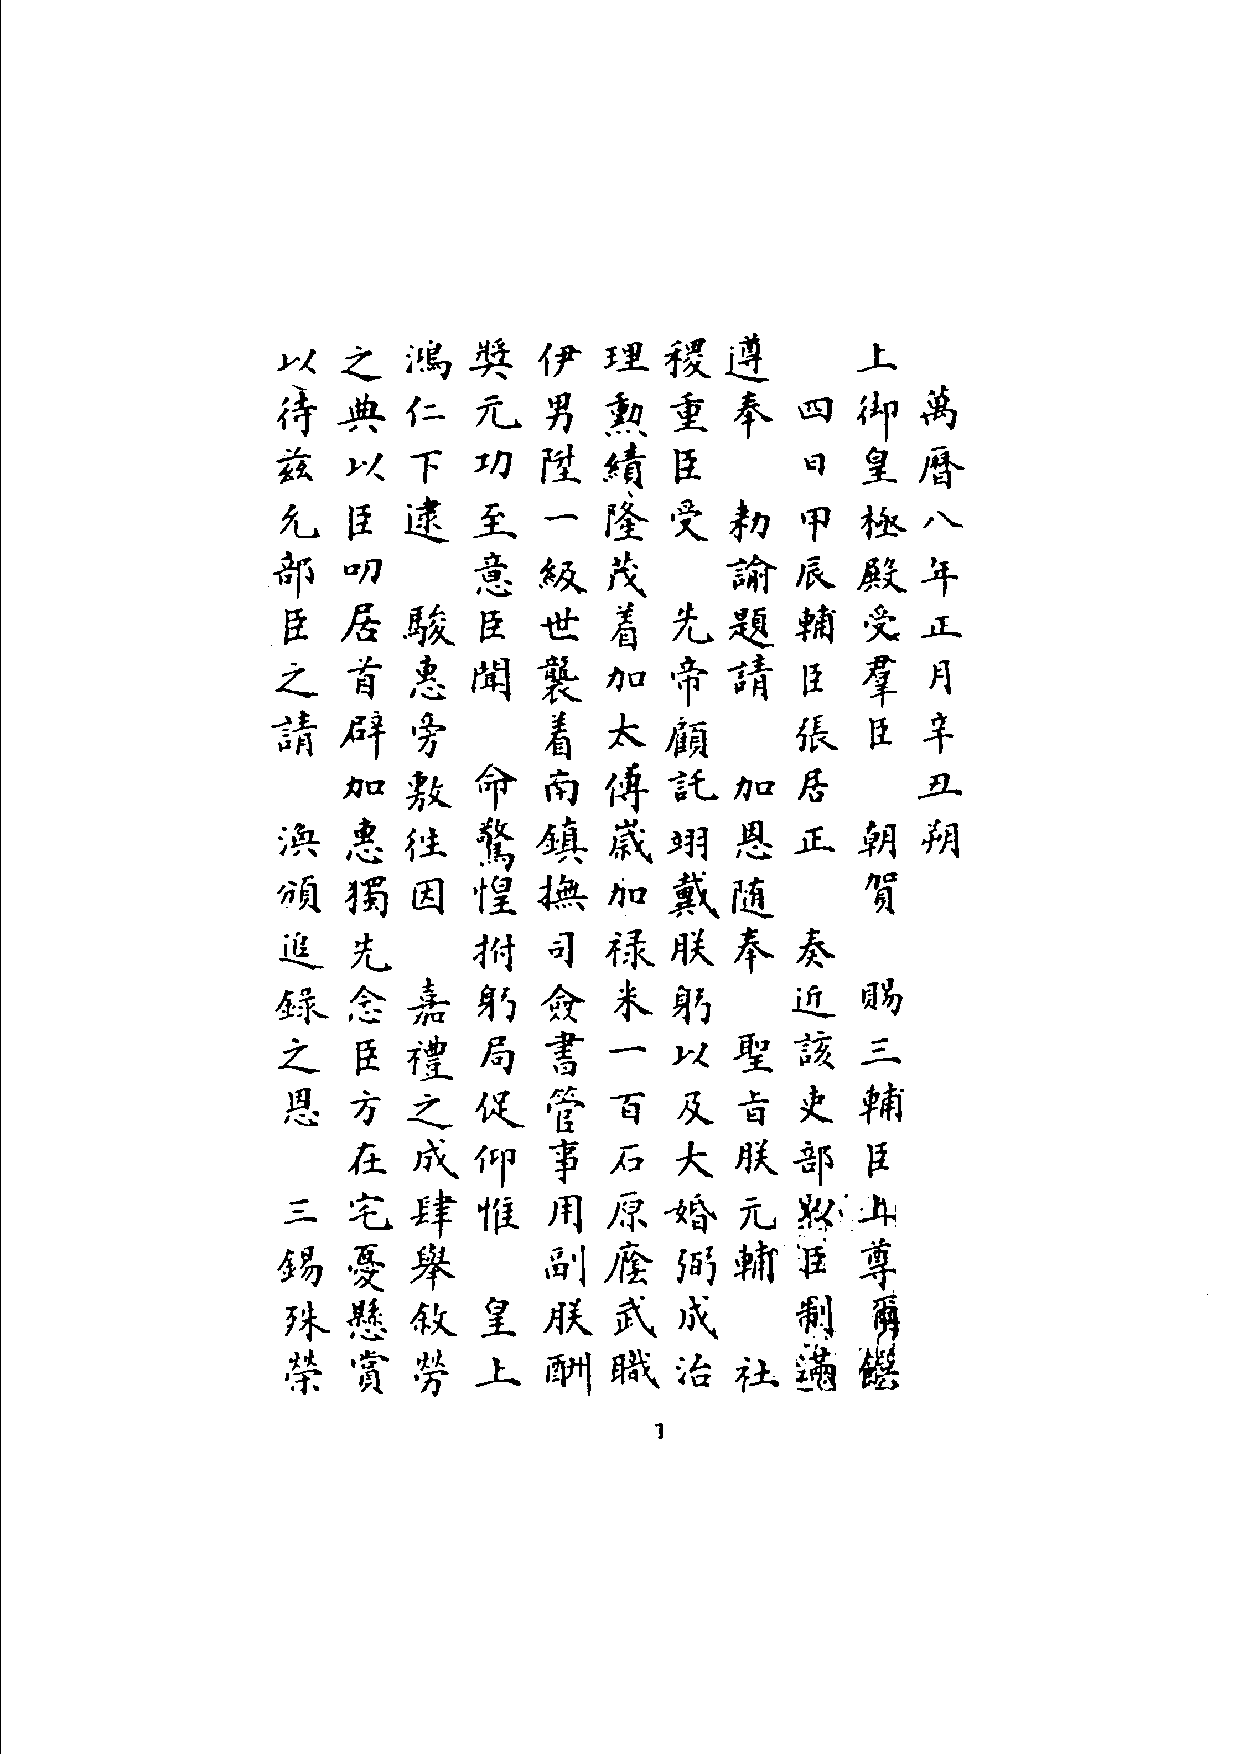 萬曆八年正月辛丑朔
上御皇極殿受羣臣 朝賀 賜三輔臣上尊
四日甲辰輔臣張居正 奏近該吏部以臣制滿
遵奉 勑諭題請 加恩随奉 聖旨朕元輔 社
稷重臣受 先帝顧託翊戴朕躬以及大婚弼成治
理勲績隆茂着加太傅歲加禄米一百石原廕武職
伊男陞一級世襲着南鎮撫司僉書管事用副朕酬
奬元功至意臣聞 命驚惶拊躬局促仰惟 皇上
鴻仁下逮 駿惠旁敷徃因 嘉禮之成肆舉敘勞
之典以臣叨居首辟加惠獨先念臣方在宅憂懸賞
以待兹允部臣之請 渙頒追錄之恩 三錫殊榮
1